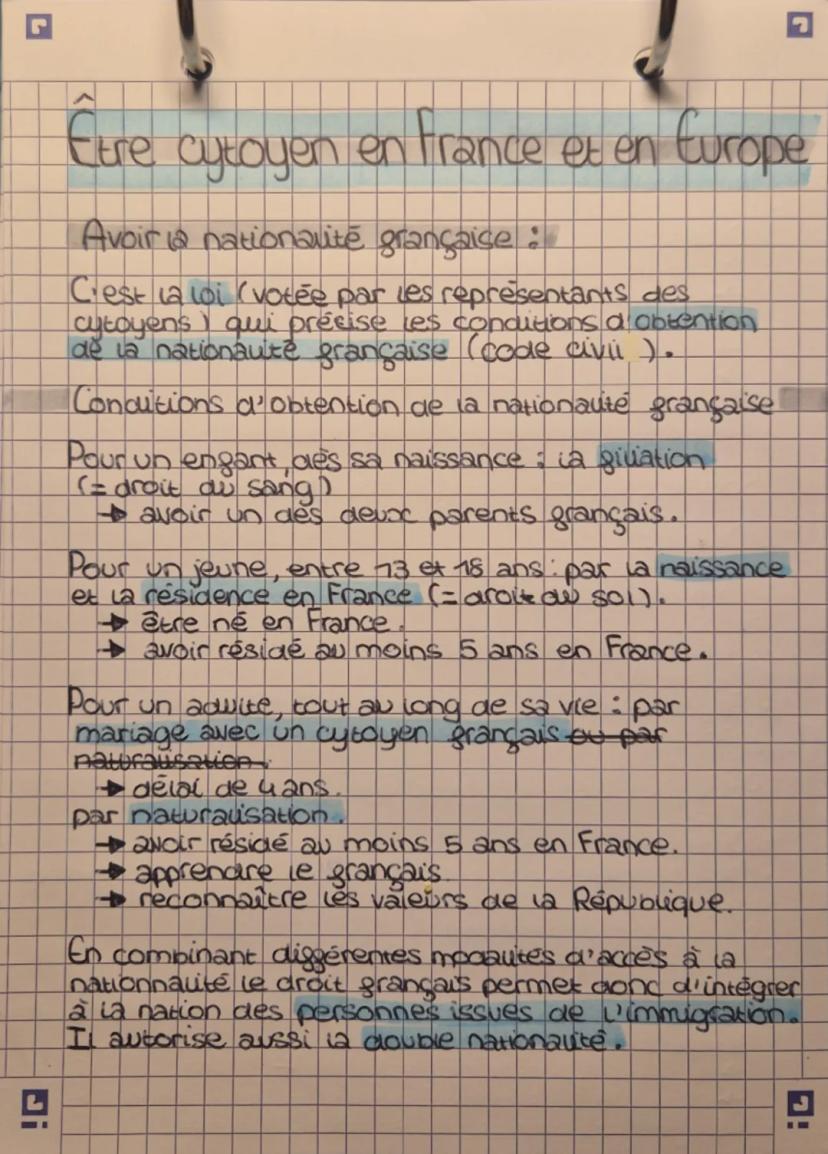 Être cytoyen en France et en Europe
Avoir la nationalité française :
C'est la loi (votée par les représentants des
cytoyens) qui précise les conditions d'obtention
de la nationalité française (code civil ).
Conditions d'obtention de la nationalité française
Pour un enfant, dés sa naissance : la filiation
(= droit du sang)
→ avoir un des deux parents français.
Pour un jeune, entre 13 et 18 ans : par la naissance
et la résidence en France (= droit du sol).
→ être né en France.
→ avoir résidé au moins 5 ans en France.
Pour un adulte, tout au long de sa vie : par
mariage avec un cytoyen français ou par
naturalisation.
→ délai de 4 ans.
par naturalisation.
→ avoir résidé au moins 5 ans en France.
→ apprendre le français.
→ reconnaître les valeurs de la République.
En combinant différentes modalités d'accès à la
nationnalité le droit français permet donc d'intégrer
à la nation des personnes issues de l'immigration.
Il autorise aussi la double nationalité.